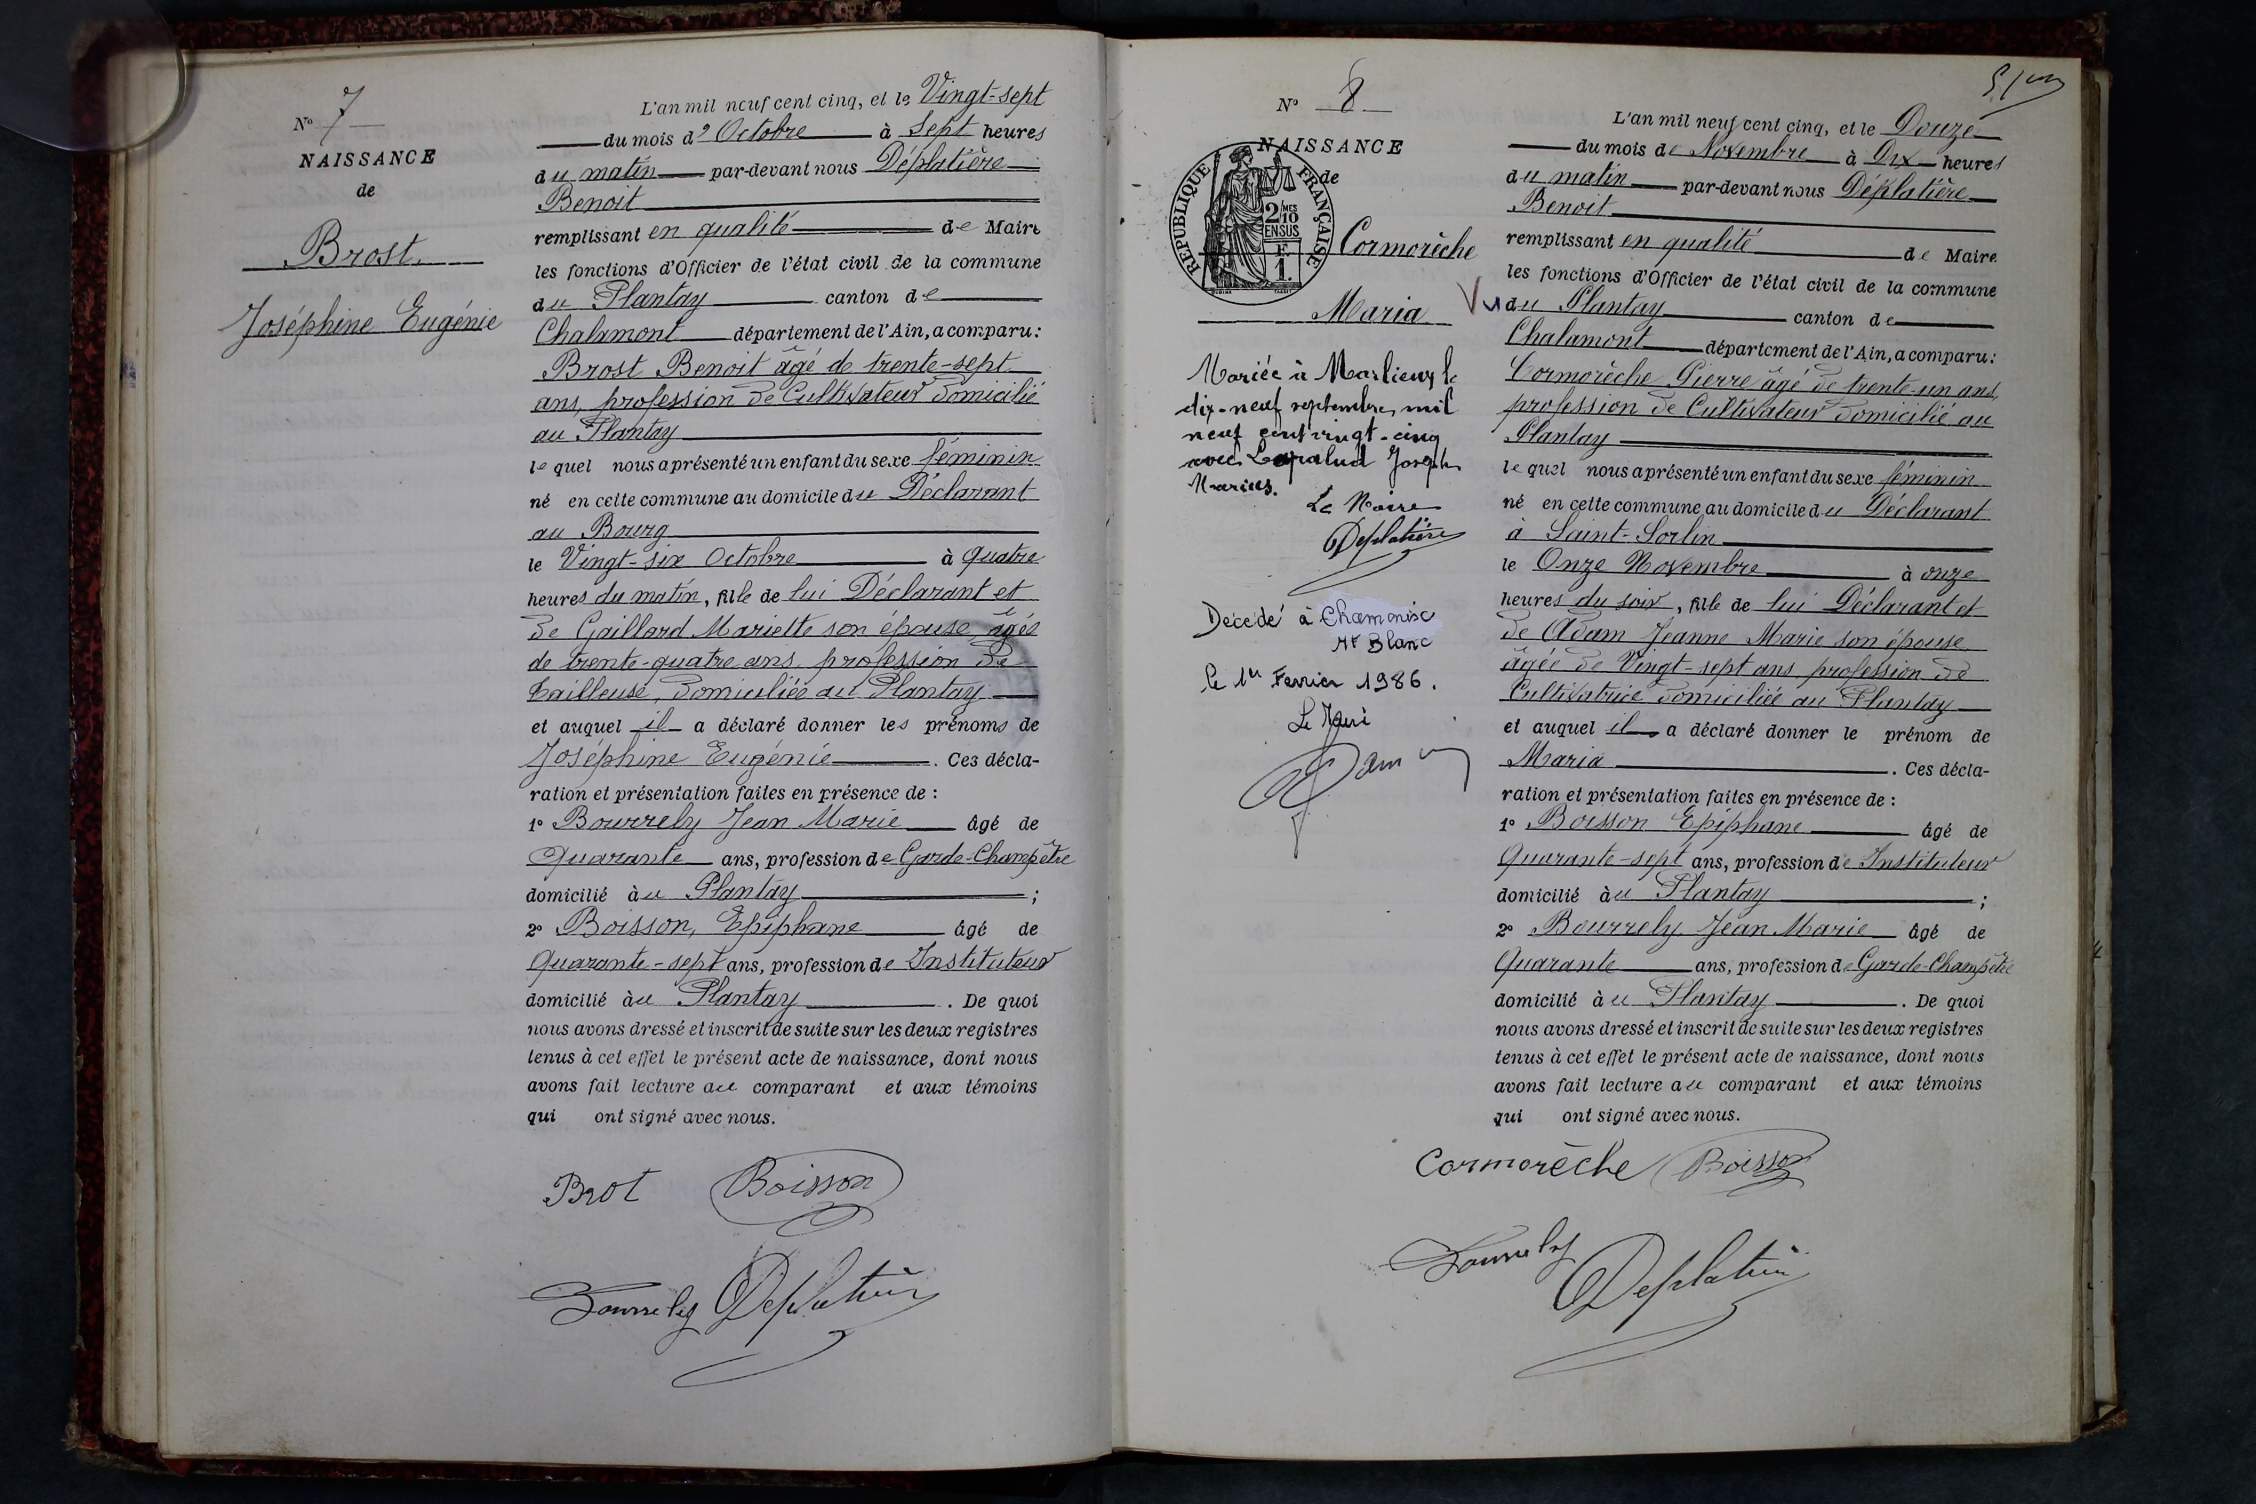 N° 7
NAISSANCE
de
Brost
Joséphine Eugénie
L'an mil neuf cent cinq, et le Vingt-sept
du mois d'Octobre à Sept heures
du matin par-devant nous Déplatière
Benoit
remplissant en qualité de Maire
les fonctions d'Officier de l'état civil de la commune
du Plantay canton de
Chalamont département de l'Ain, a comparu :
Brost Benoit âgé de trente-sept
ans, profession de Cultivateur domicilié
au Plantay
lequel nous a présenté un enfant du sexe féminin
né en cette commune au domicile du Déclarant
au Bourg
le Vingt-six Octobre à quatre
heures du matin, fille de lui Déclarant et
de Gaillard Mariette son épouse âgée
de trente-quatre ans profession de
tailleuse, domiciliée au Plantay
et auquel il a déclaré donner les prénoms de
Joséphine Eugénie. Ces décla-
ration et présentation faites en présence de :
1° Bourrely Jean Marie âgé de
Quarante ans, profession de Garde-Champêtre
domicilié àu Plantay ;
2° Boisson, Epiphane âgé de
Quarante-sept ans, profession de Instituteur
domicilié àu Plantay. De quoi
nous avons dressé et inscrit de suite sur les deux registres
tenus à cet effet le présent acte de naissance, dont nous
avons fait lecture au comparant et aux témoins
qui ont signé avec nous.
Brot Boisson
Bourrely Deplatière
N° 8
NAISSANCE
de
RÉPUBLIQUE FRANÇAISE
2/10 MES
EN SUS
F.
1.
Cormorèche
Maria
Mariée à Marlieux le
dix-neuf septembre mil
neuf cent vingt-cinq
avec Lapalud Joseph
Marius.
Le Maire
Deplatière
Décédé à Chamonix
Mt Blanc
le 1er Fevrier 1986.
Le Maire
51
L'an mil neuf cent cinq, et le Douze
du mois de Novembre à Dix heures
du matin par-devant nous Déplatière
Benoit
remplissant en qualité de Maire
les fonctions d'Officier de l'état civil de la commune
Vu du Plantay canton de
Chalamont département de l'Ain, a comparu :
Cormorèche Pierre âgé de trente-un ans,
profession de Cultivateur domicilié au
Plantay
lequel nous a présenté un enfant du sexe féminin
né en cette commune au domicile du Déclarant
à Saint-Sorlin
le Onze Novembre à onze
heures du soir, fille de lui Déclarant et
de Adam Jeanne Marie son épouse
âgée de Vingt-sept ans, profession de
Cultivatrice domiciliée au Plantay
et auquel il a déclaré donner le prénom de
Maria. Ces décla-
ration et présentation faites en présence de :
1° Boisson Epiphane âgé de
Quarante-sept ans, profession de Instituteur
domicilié àu Plantay ;
2° Bourrely Jean Marie âgé de
Quarante ans, profession de Garde-Champêtre
domicilié àu Plantay. De quoi
nous avons dressé et inscrit de suite sur les deux registres
tenus à cet effet le présent acte de naissance, dont nous
avons fait lecture au comparant et aux témoins
qui ont signé avec nous.
Cormorèche Boisson
Bourrely Deplatière